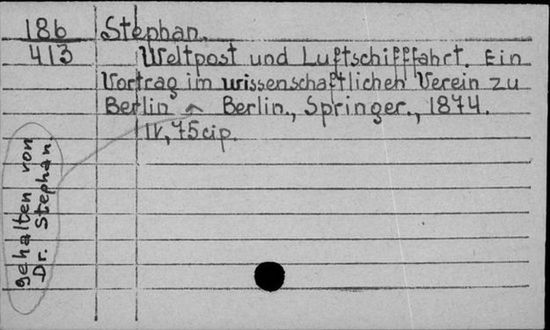 186 Stephan.
413 Weltpost und Luftschifffahrt. Ein
Vortrag im wissenschaftlichen Verein zu
Berlin ^ Berlin., Springer., 1874.
IV, 75 cip.
gehalten von
Dr. Stephan